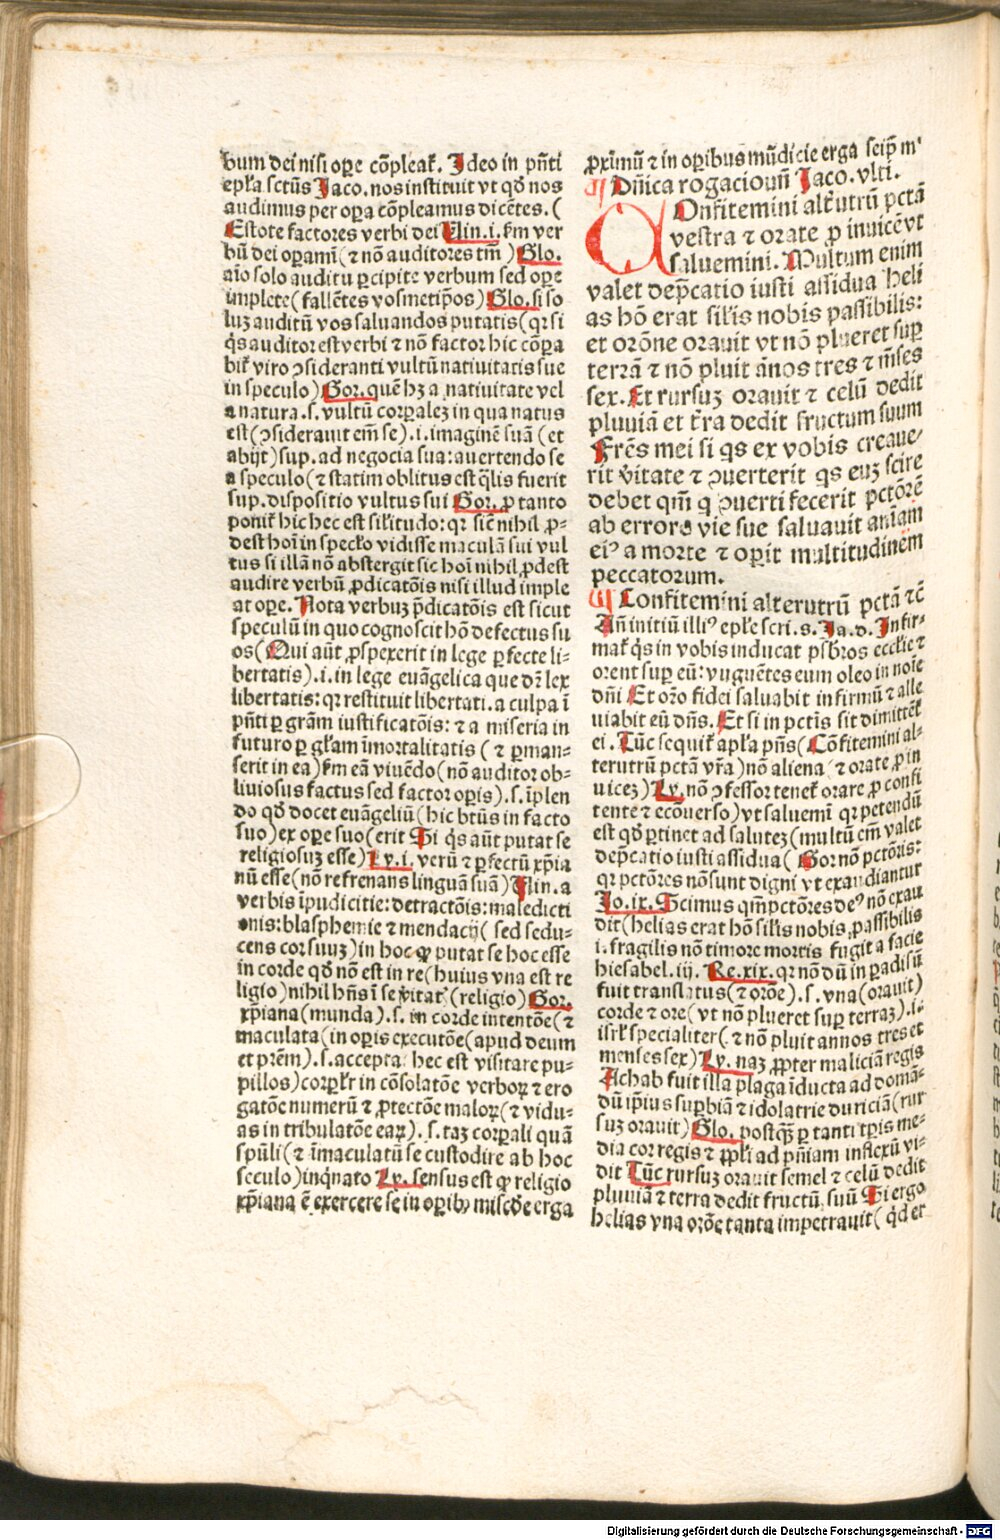 bum dei nisi oꝑe cōpleat̄. Ideo in pn̄ti
epl̄a sctūs Jaco. nos instituit vt qđ nos
audimus per oꝑa cōpleamus dicētes. (
Estote factores verbi dei Lin. i. ẜm ver
bū dei oꝑamī (⁊ nō auditores tm̄) Glo.
aīo solo auditu ꝑcipite verbum sed oꝑe
implete (fallētes vosmetip̄os) Glo. si so
luꝫ auditū vos saluandos putatis (qꝛ si
q̄s auditor est verbi ⁊ nō factor hic cōꝑa
bit̄ viro ꝯsideranti vultū natiuitatis sue
in speculo) Gor. quē hꝫ a natiuitate vel
a natura .s. vultū corꝑaleꝫ in qua natus
est (ꝯsiderauit em̄ se) .i. imaginē suā (et
abijt) sup. ad negocia sua: auertendo se
a speculo (⁊ statim oblitus est q̄lis fuerit
sup. dispositio vultus sui Gor. ꝑ tanto
ponit̄ hic hec est sil̄itudo: qꝛ sic̄ nihil ꝓ-
dest hoī in specl̄o vidisse maculā sui vul
tus si illā nō abstergit sic hoī nihil ꝓdest
audire verbū ꝓdicatōis nisi illud imple
at oꝑe. Nota verbuꝫ p̄dicatōis est sicut
speculū in quo cognoscit hō defectus su
os (Qui aūt ꝓspexerit in lege ꝑfecte li-
bertatis) .i. in lege euāgelica que dr̄ lex
libertatis: qꝛ restituit libertati. a culpa ī
pn̄ti ꝑ grām iustificatōis: ⁊ a miseria in
futuro ꝑ gl̄am īmortalitatis (⁊ ꝑman-
serit in ea) ẜm eā viuēdo (nō auditor ob-
liuiosus factus sed factor oꝑis) .s. īplen
do qđ docet euāgeliū (hic btūs in facto
suo) ex oꝑe suo (erit Si q̄s aūt putat se
religiosuꝫ esse) Ly. i. verū ⁊ ꝑfectū xp̄ia
nū esse (nō refrenans linguā suā) Lin. a
verbis īpudicitie: detractōis: maledicti
onis: blasphemie ⁊ mendacij (sed sedu-
cens cor suuꝫ) in hoc ꝙ putat se hoc esse
in corde qđ nō est in re (huius vna est re
ligio) nihil hn̄s ī se v̄itat̄ (religio) Gor.
xp̄iana (munda) .s. in corde intentōe (⁊
īmaculata (in oꝑis executōe (apud deum
et prēm) .s. accepta. hec est visitare pu-
pillos) corꝑl̄r in cōsolatōe verboꝝ ⁊ ero
gatōe numerū ⁊ ꝓtectōe maloꝝ (⁊ vidu-
as in tribulatōe eaꝝ) .s. taꝫ corꝑali quā
spūli (⁊ īmaculatū se custodire ab hoc
seculo) inq̄nato Ly. sensus est ꝙ religio
xp̄iana ē exercere se in oꝑibꝰ mīscđe erga
ꝓximū ⁊ in oꝑibus mūdicie erga seip̄m
Dn̄ica rogacionū Jaco. vlti.
Onfitemini alt̄utrū pctā
vestra ⁊ orate ꝓ inuicē vt
saluemini. Multum enim
valet dep̄catio iusti assidua heli
as hō erat sil̄is nobis passibilis:
et orōne orauit vt nō plueret suꝑ
terrā ⁊ nō pluit ānos tres ⁊ m̄ses
sex. Et rursuꝫ orauit ⁊ celū dedit
pluuiā et t̄ra dedit fructum suum
Frēs mei si qs ex vobis erraue-
rit v̄itate ⁊ ꝯuerterit qs euꝫ scire
debet qm̄ q ꝯuerti fecerit pctōrē
ab errore vie sue saluauit animam
eiꝰ a morte ⁊ oꝑit multitudinem
peccatorum.
Confitemini alterutrū pctā ⁊c̄
An̄ initiū illiꝰ epl̄e scri. s. Ja. d. Infir-
mat̄ q̄s in vobis inducat p̄sbros eccl̄ie ⁊
orent suꝑ eū: vnguētes eum oleo in noīe
dn̄i Et orō fidei saluabit infirmū ⁊ alle
uiabit eū dn̄s. Et si in pctīs sit dimittēt̄
ei. Tūc sequit̄ apl̄a pn̄s (Cōfitemini al-
terutrū pctā vr̄a) nō aliena (⁊ orate ꝓ in
uiceꝫ) Ly. nō ꝯfessor tenet̄ orare ꝓ confi
tente ⁊ ecōuerso) vt saluemī qꝛ petendū
est qđ ꝑtinet ad saluteꝫ (multū em̄ valet
dep̄catio iusti assidua (Gor nō pctōris:
qꝛ pctōres nō sunt digni vt exaudiantur
Jo. ix. Scimus qm̄ pctōres deꝰ nō exau
dit (helias erat hō sil̄is nobis, passibilis
.i. fragilis nō timore mortis fugit a facie
hiesabel. iij. Re. xix. qꝛ nō dū in ꝑadisū
fuit translatus (⁊ orōe) .s. vna (orauit)
corde ⁊ ore (vt nō plueret suꝑ terraꝫ) .i.
isrl̄ specialiter (⁊ nō pluit annos tres et
menses sex) Ly. naꝫ ꝓpter maliciā regis
Achab fuit illa plaga īducta ad domā-
dū ip̄ius suꝑbiā ⁊ idolatrie duriciā (rur
suꝫ orauit) Glo. postqꝫ ꝑ tanti tꝑis me-
dia cor regis ⁊ ꝓpl̄i ad pn̄iam inflexū vi-
dit Tūc rursuꝫ orauit semel ⁊ celū dedit
pluuiā ⁊ terra dedit fructū, suū Si ergo
helias vna orōe tanta impetrauit (q̄d er
Digitalisierung gefördert durch die Deutsche Forschungsgemeinschaft - DFG